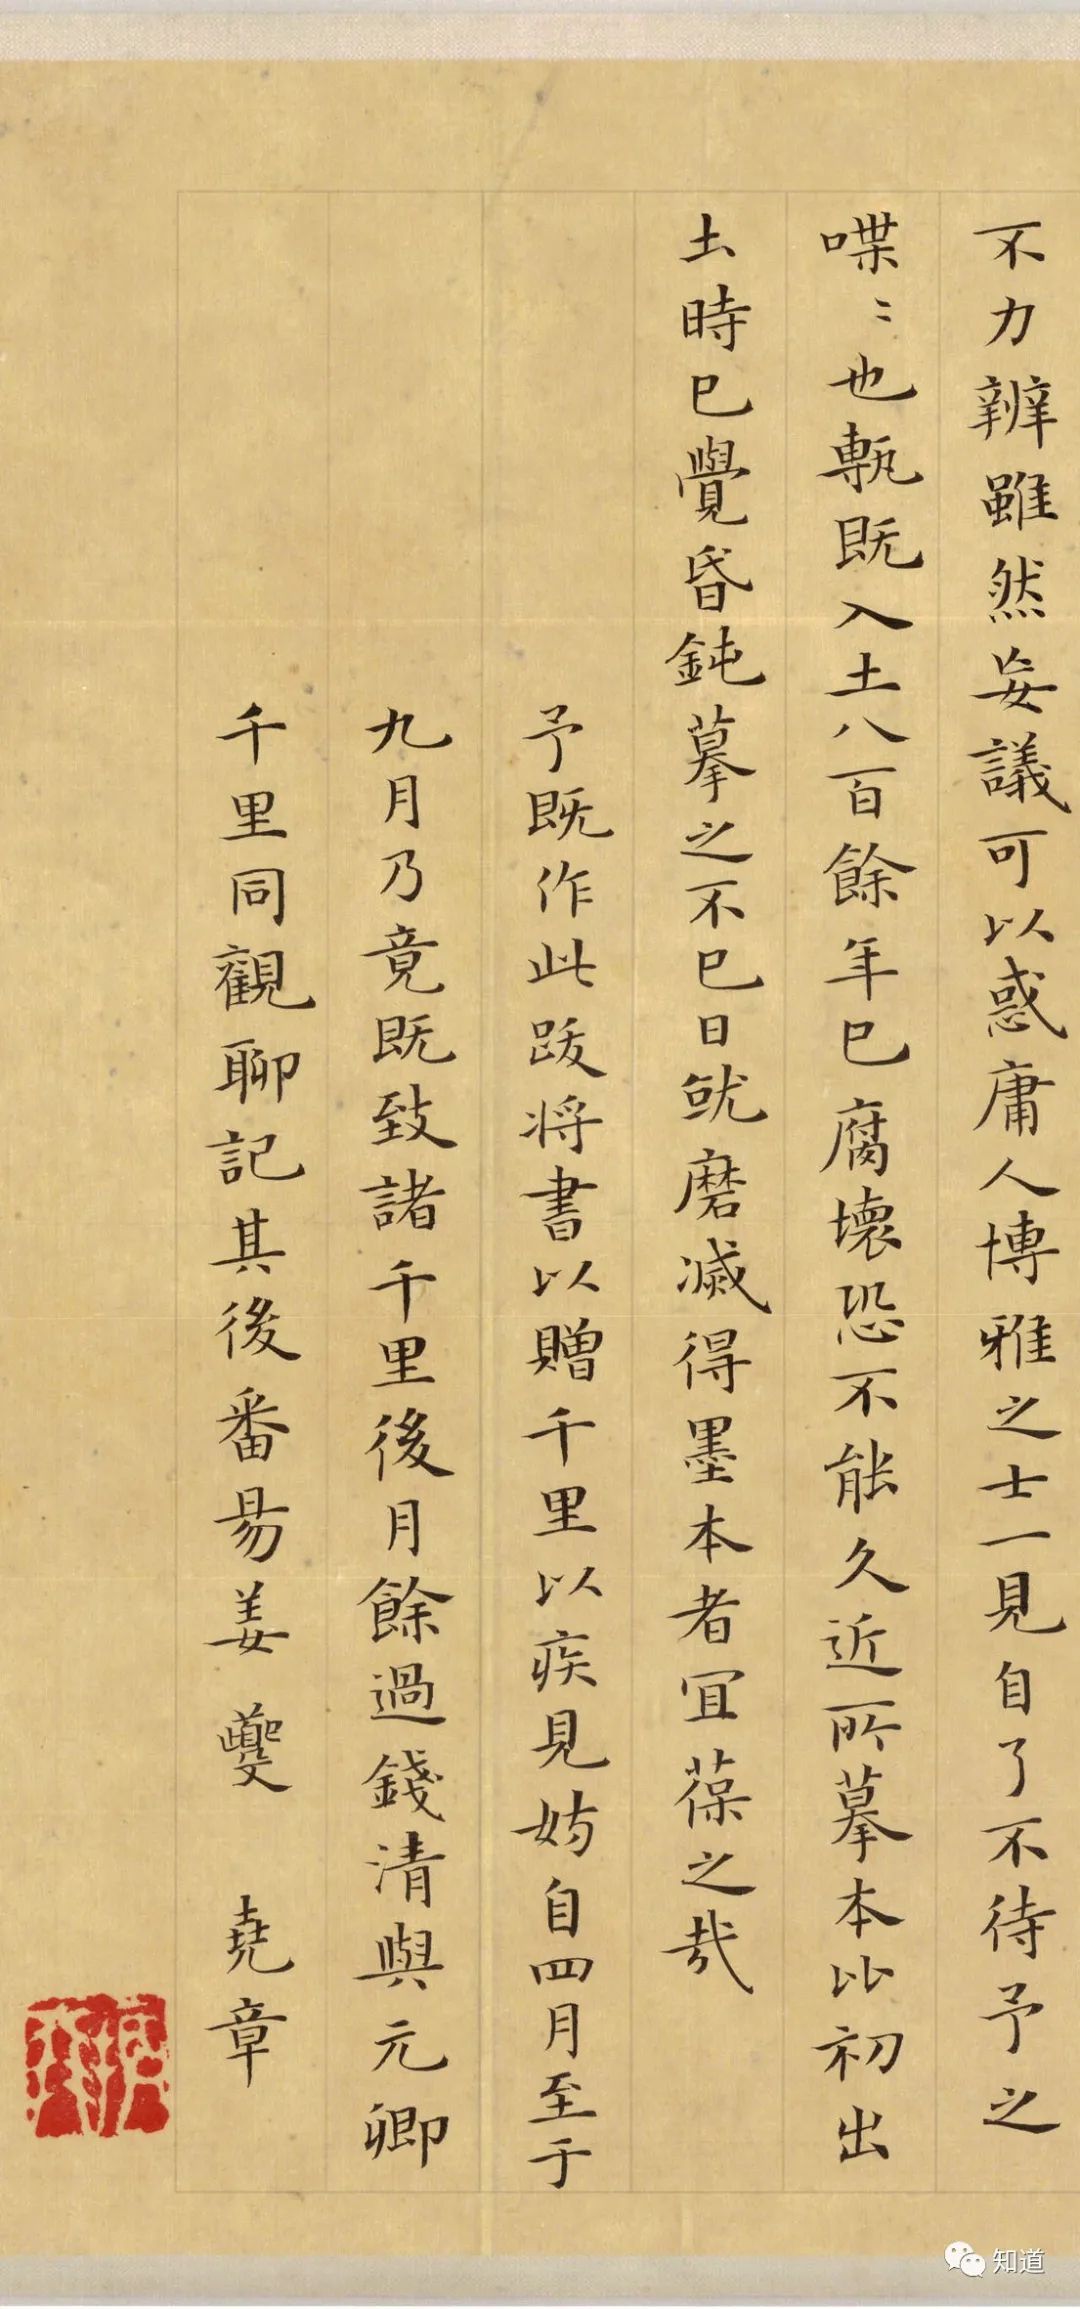 不力辨雖然妄議可以惑庸人博雅之士一見自了不待予之
喋〻也甎既入土八百餘年已腐壞恐不能久近所摹本比初出
土時已覺昏鈍摹之不已日就磨滅得墨本者宜葆之哉
予既作此跋將書以贈千里以疾見妨自四月至于
九月乃竟既致諸千里後月餘過錢清與元卿
千里同觀聊記其後番昜姜夔 堯章
知道